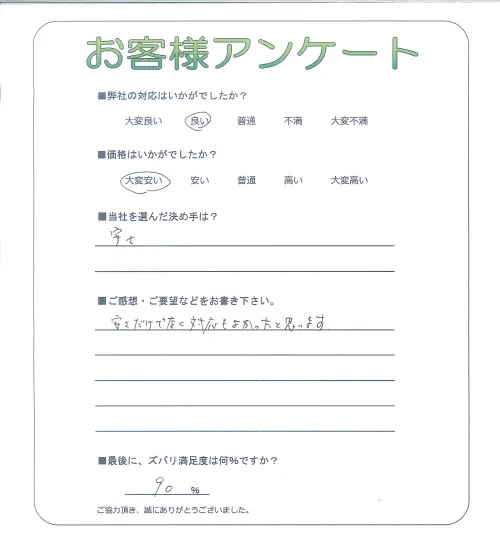 お客様アンケート
■弊社の対応はいかがでしたか？
大変良い 良い 普通 不満 大変不満
■価格はいかがでしたか？
大変安い 安い 普通 高い 大変高い
■当社を選んだ決め手は？
安さ
■ご感想・ご要望などをお書き下さい。
安さだけでなく対応もよかったと思います
■最後に、ズバリ満足度は何%ですか？
90 %
ご協力頂き、誠にありがとうございました。